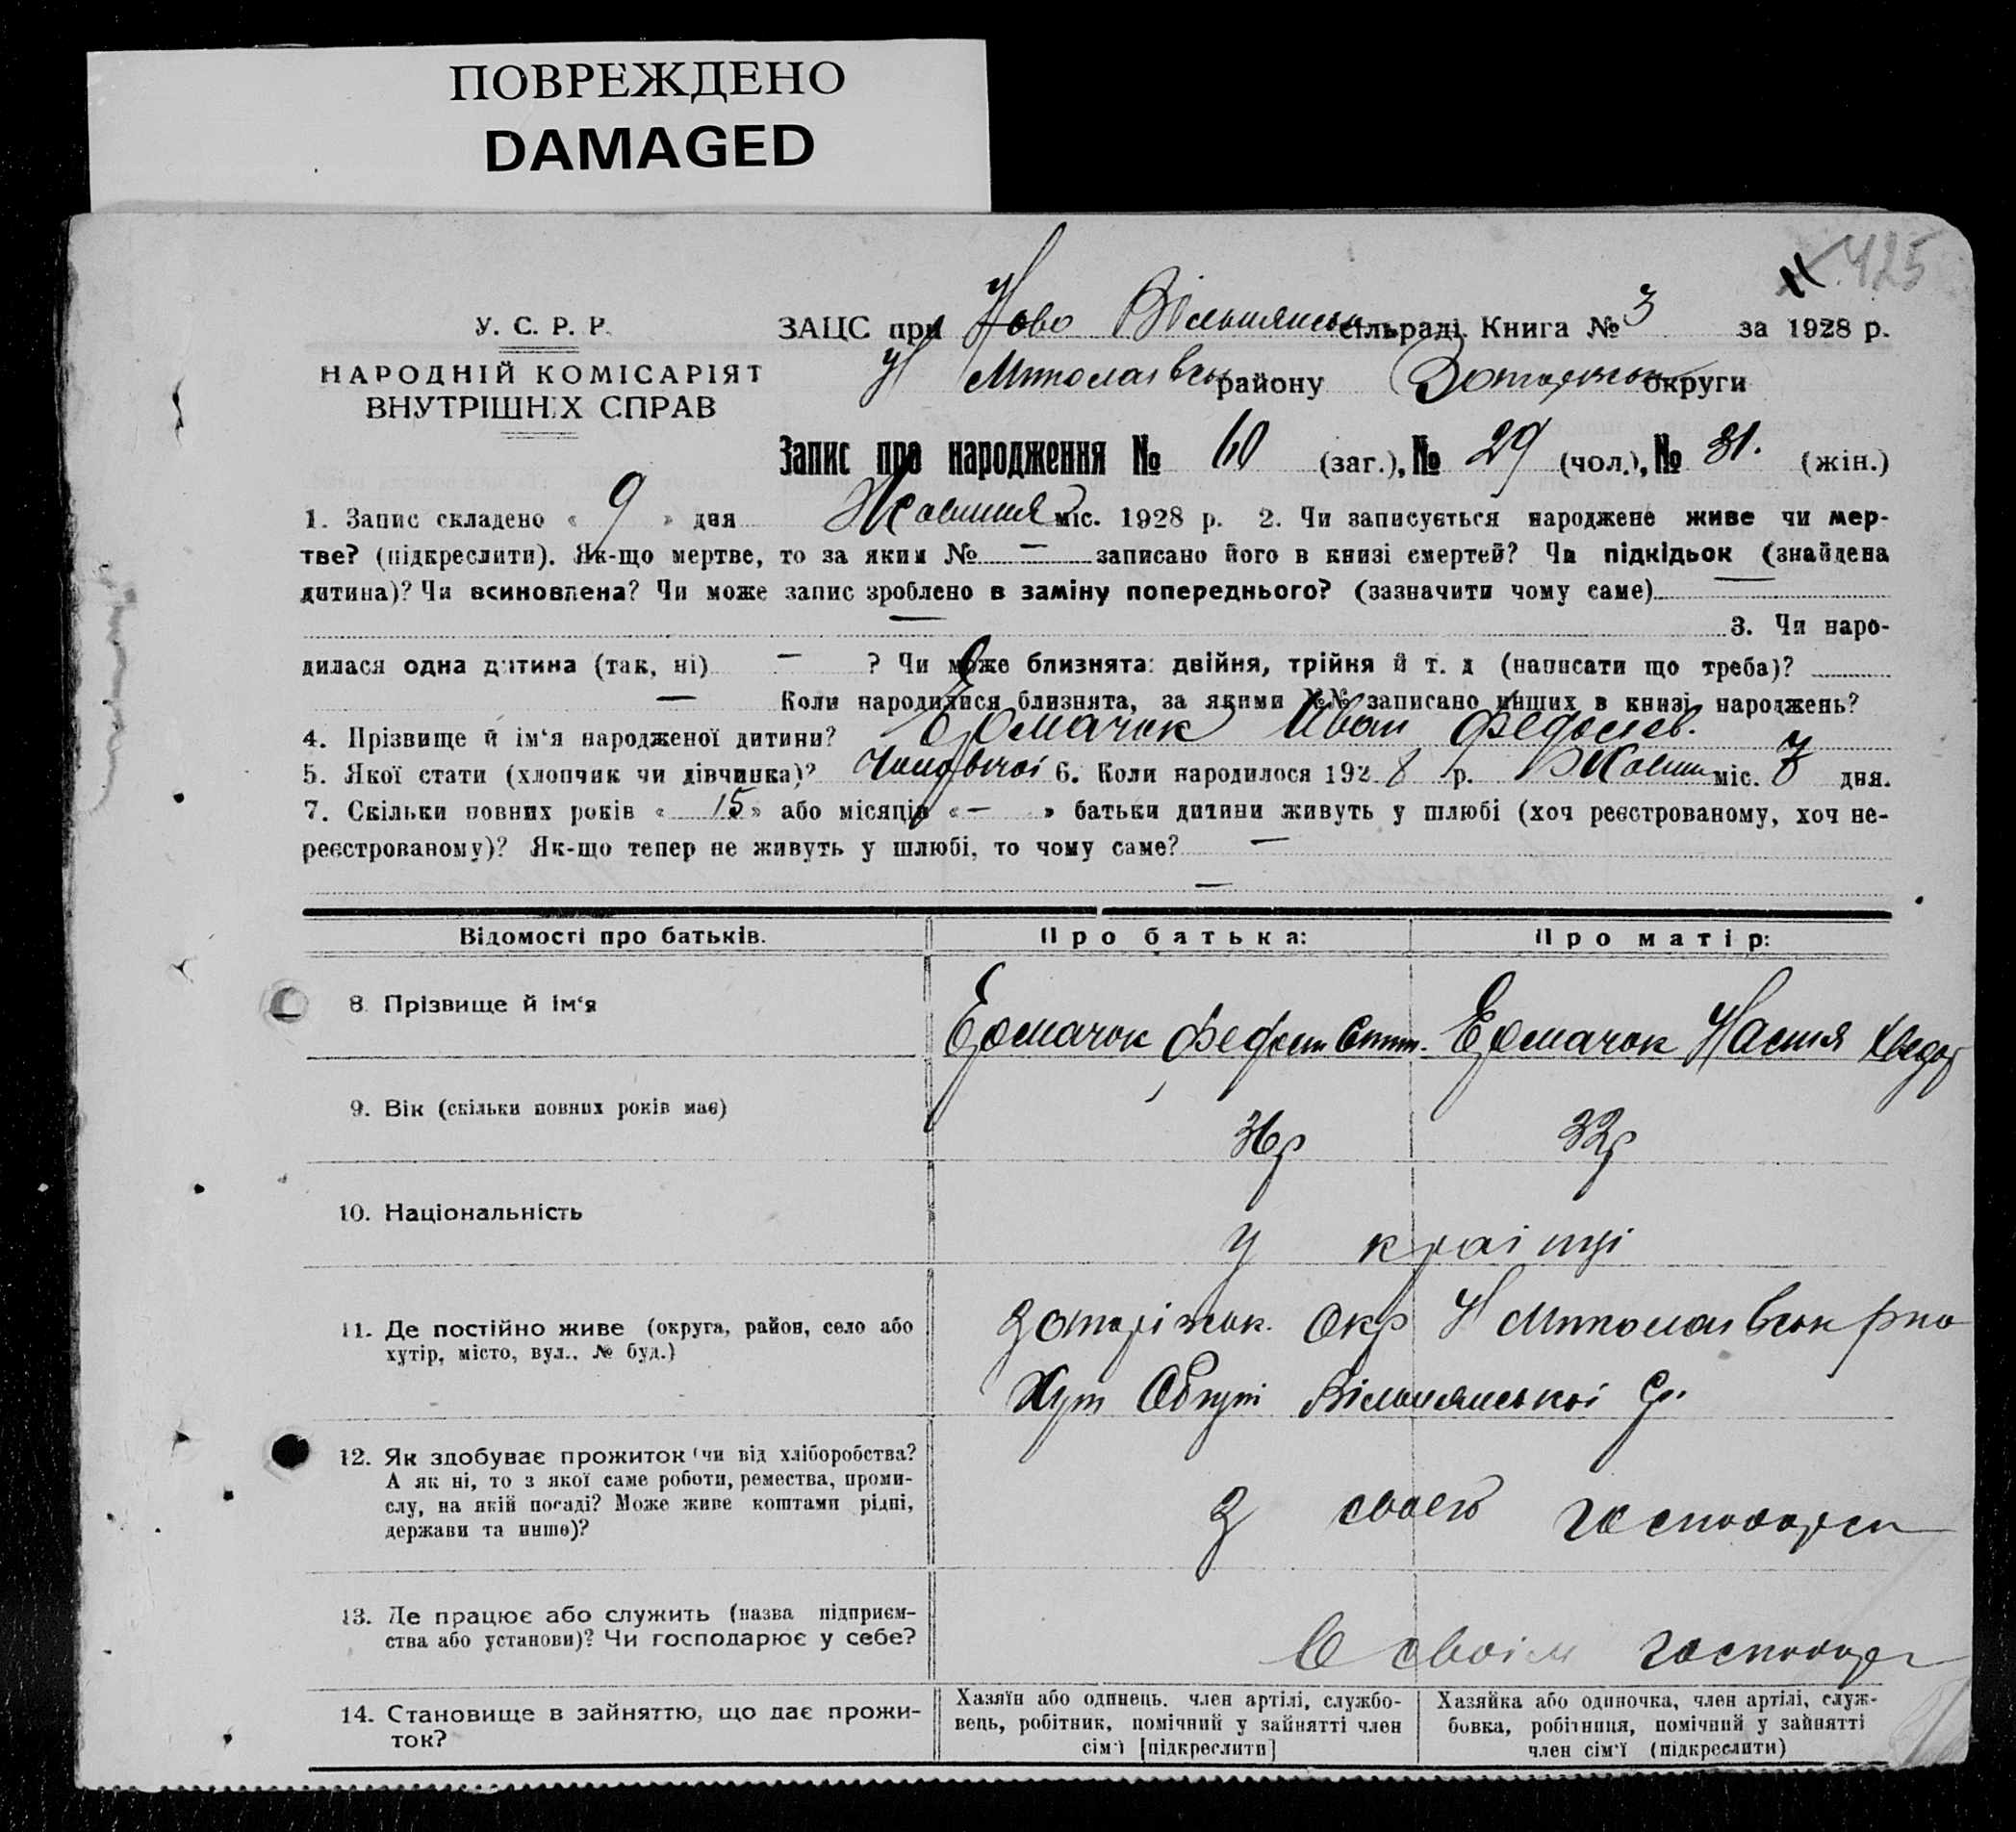 ПОВРЕЖДЕНО
DAMAGED
425
У. С. Р. Р.
НАРОДНІЙ КОМІСАРІЯТ
ВНУТРІШНІХ СПРАВ
ЗАЦС при Ново Вільшанськ сільраді. Книга № 3 за 1928 р.
Н Миколаївськ району округи
Запис про народження № 60 (заг.), № 29 (чол.), № 31. (жін.)
1. Запис складено « 9 » дня Жовтня міс. 1928 р. 2. Чи записується народжене живе чи мер-
тве? (підкреслити). Як-що мертве, то за яким № — записано його в книзі смертей? Чи підкідьок (знайдена
дитина)? Чи всиновлена? Чи може запис зроблено в заміну попереднього? (зазначити чому саме) —
— 3. Чи наро-
дилася одна дитина (так, ні) — ? Чи може близнята: двійня, трійня й т. д (написати що треба)?
— Коли народилися близнята, за якими №№ записано инших в книзі народжень?
4. Прізвище й ім‘я народженої дитини? Ермачок Иван Федосієв.
5. Якої стати (хлопчик чи дівчинка)? Чоловічої 6. Коли народилося 192 8 р. Жовтн міс. 7 дня.
7. Скільки повних років « 15 » або місяців « — » батьки дитини живуть у шлюбі (хоч реєстрованому, хоч не-
реєстрованому)? Як-що тепер не живуть у шлюбі, то чому саме? —
—
Відомості про батьків. Про батька: Про матір:
8. Прізвище й ім‘я Ермачок Федосій Ермачок Настя Хведор
9. Вік (скільки повних років має) 36р 32р
10. Національність Українці
11. Де постійно живе (округа, район, село або
хутір, місто, вул., № буд.)
Запоріжськ. Окр Н Миколаївськ рно
Хут Вільшанської Ср.
12. Як здобуває прожиток (чи від хліборобства?
А як ні, то з якої саме роботи, ремества, проми-
слу, на якій посаді? Може живе коштами рідні,
держави та инше)?
З своего господарс
13. Де працює або служить (назва підприєм-
ства або установи)? Чи господарює у себе?
В своїм господар
14. Становище в зайняттю, що дає прожи-
ток?
Хазяїн або одинець. член артілі, службо-
вець, робітник, помічний у зайнятті член
сім‘ї [підкреслити]
Хазяйка або одиночка, член артілі, служ-
бовка, робітниця, помічний у зайнятті
член сім‘ї (підкреслити)